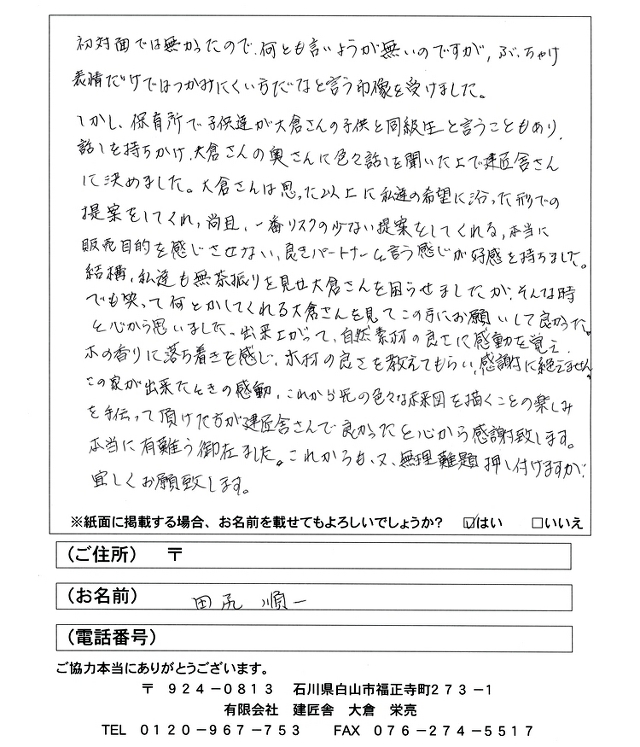 初対面では無かったので、何とも言いようが無いのですが、ぶっちゃけ
表情だけではつかみにくい方だなと言う印像を受けました。
しかし、保育所で子供達が大倉さんの子供と同級生と言うこともあり、
話しを持ちかけ、大倉さんの奥さんに色々話しを聞いた上で建匠舎さん
に決めました。大倉さんは思った以上に私達の希望に沿った形での
提案をしてくれ、尚且、一番リスクの少ない提案をしてくれる、本当に
販売目的を感じさせない、良きパートナーと言う感じが好感を持ちました。
結構、私達も無茶振りを見せ大倉さんを困らせましたが、そんな時
でも笑って何とかしてくれる大倉さんを見てこの手にお願いして良かった。
と心から思いました。出来上がって、自然素材の良さに感動を覚え、
木の香りに落ち着きを感じ、木材の良さを教えてもらい、感謝に絶えません。
この家が出来たときの感動、これから先の色々な未来図を描くことの楽しみ
を手伝って頂けた方が建匠舎さんで良かったと心から感謝致します。
本当に有難う御在ました。これからも、又、無理難題押し付けますが、
宜しくお願致します。
※紙面に掲載する場合、お名前を載せてもよろしいでしょうか? ☑はい □いいえ
(ご住所) 〒
(お名前) 田 順一
(電話番号)
ご協力本当にありがとうございます。
〒 924-0813 石川県白山市福正寺町273-1
有限会社 建匠舎 大倉 栄亮
TEL 0120-967-753 FAX 076-274-5517